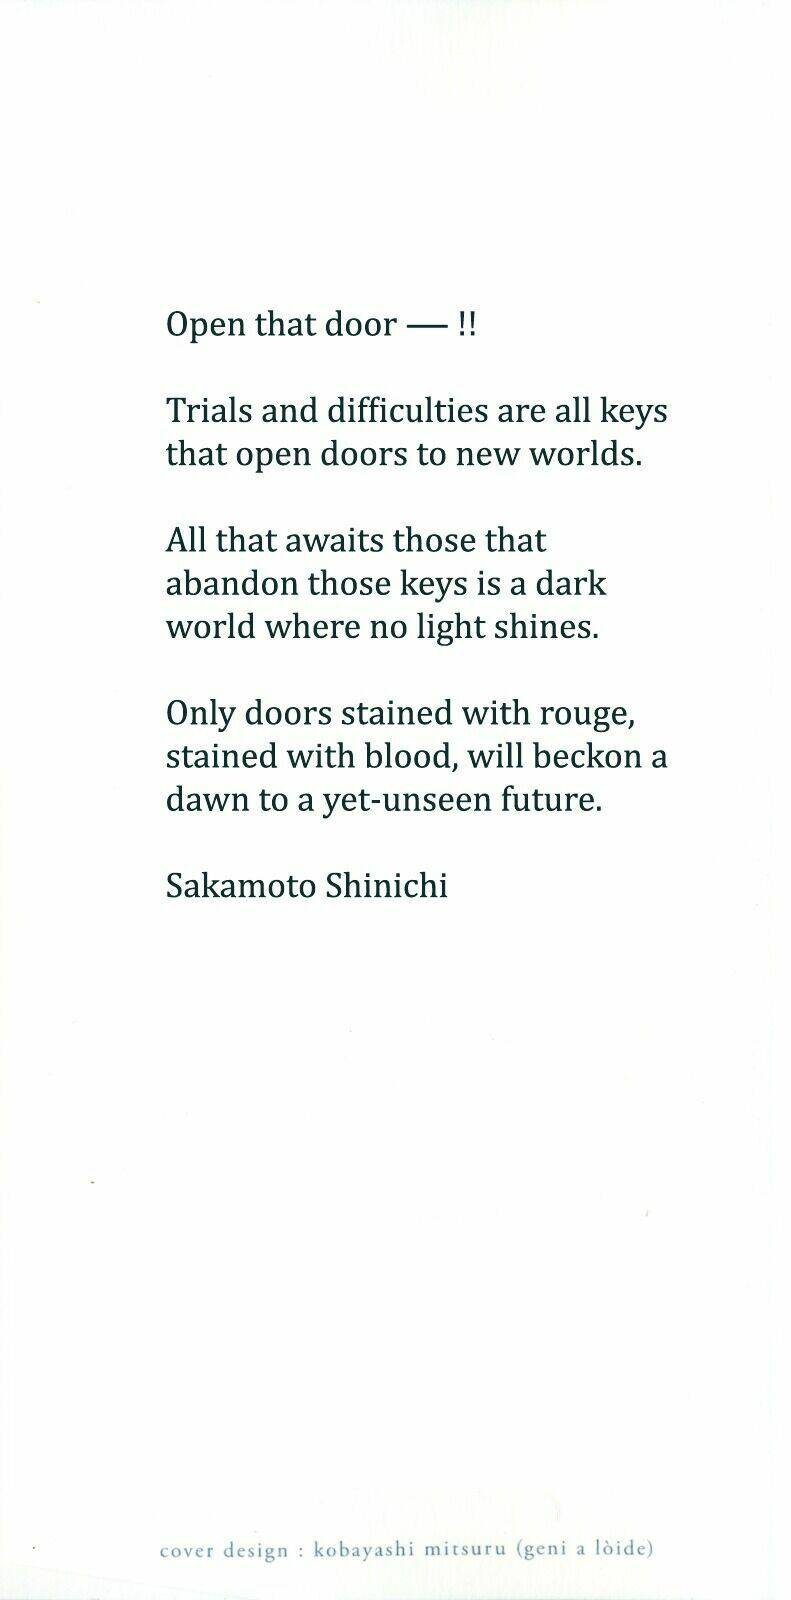 Open that door — !!
Trials and difficulties are all keys
that open doors to new worlds.
All that awaits those that
abandon those keys is a dark
world where no light shines.
Only doors stained with rouge,
stained with blood, will beckon a
dawn to a yet-unseen future.
Sakamoto Shinichi
cover design : kobayashi mitsuru (geni a lòide)